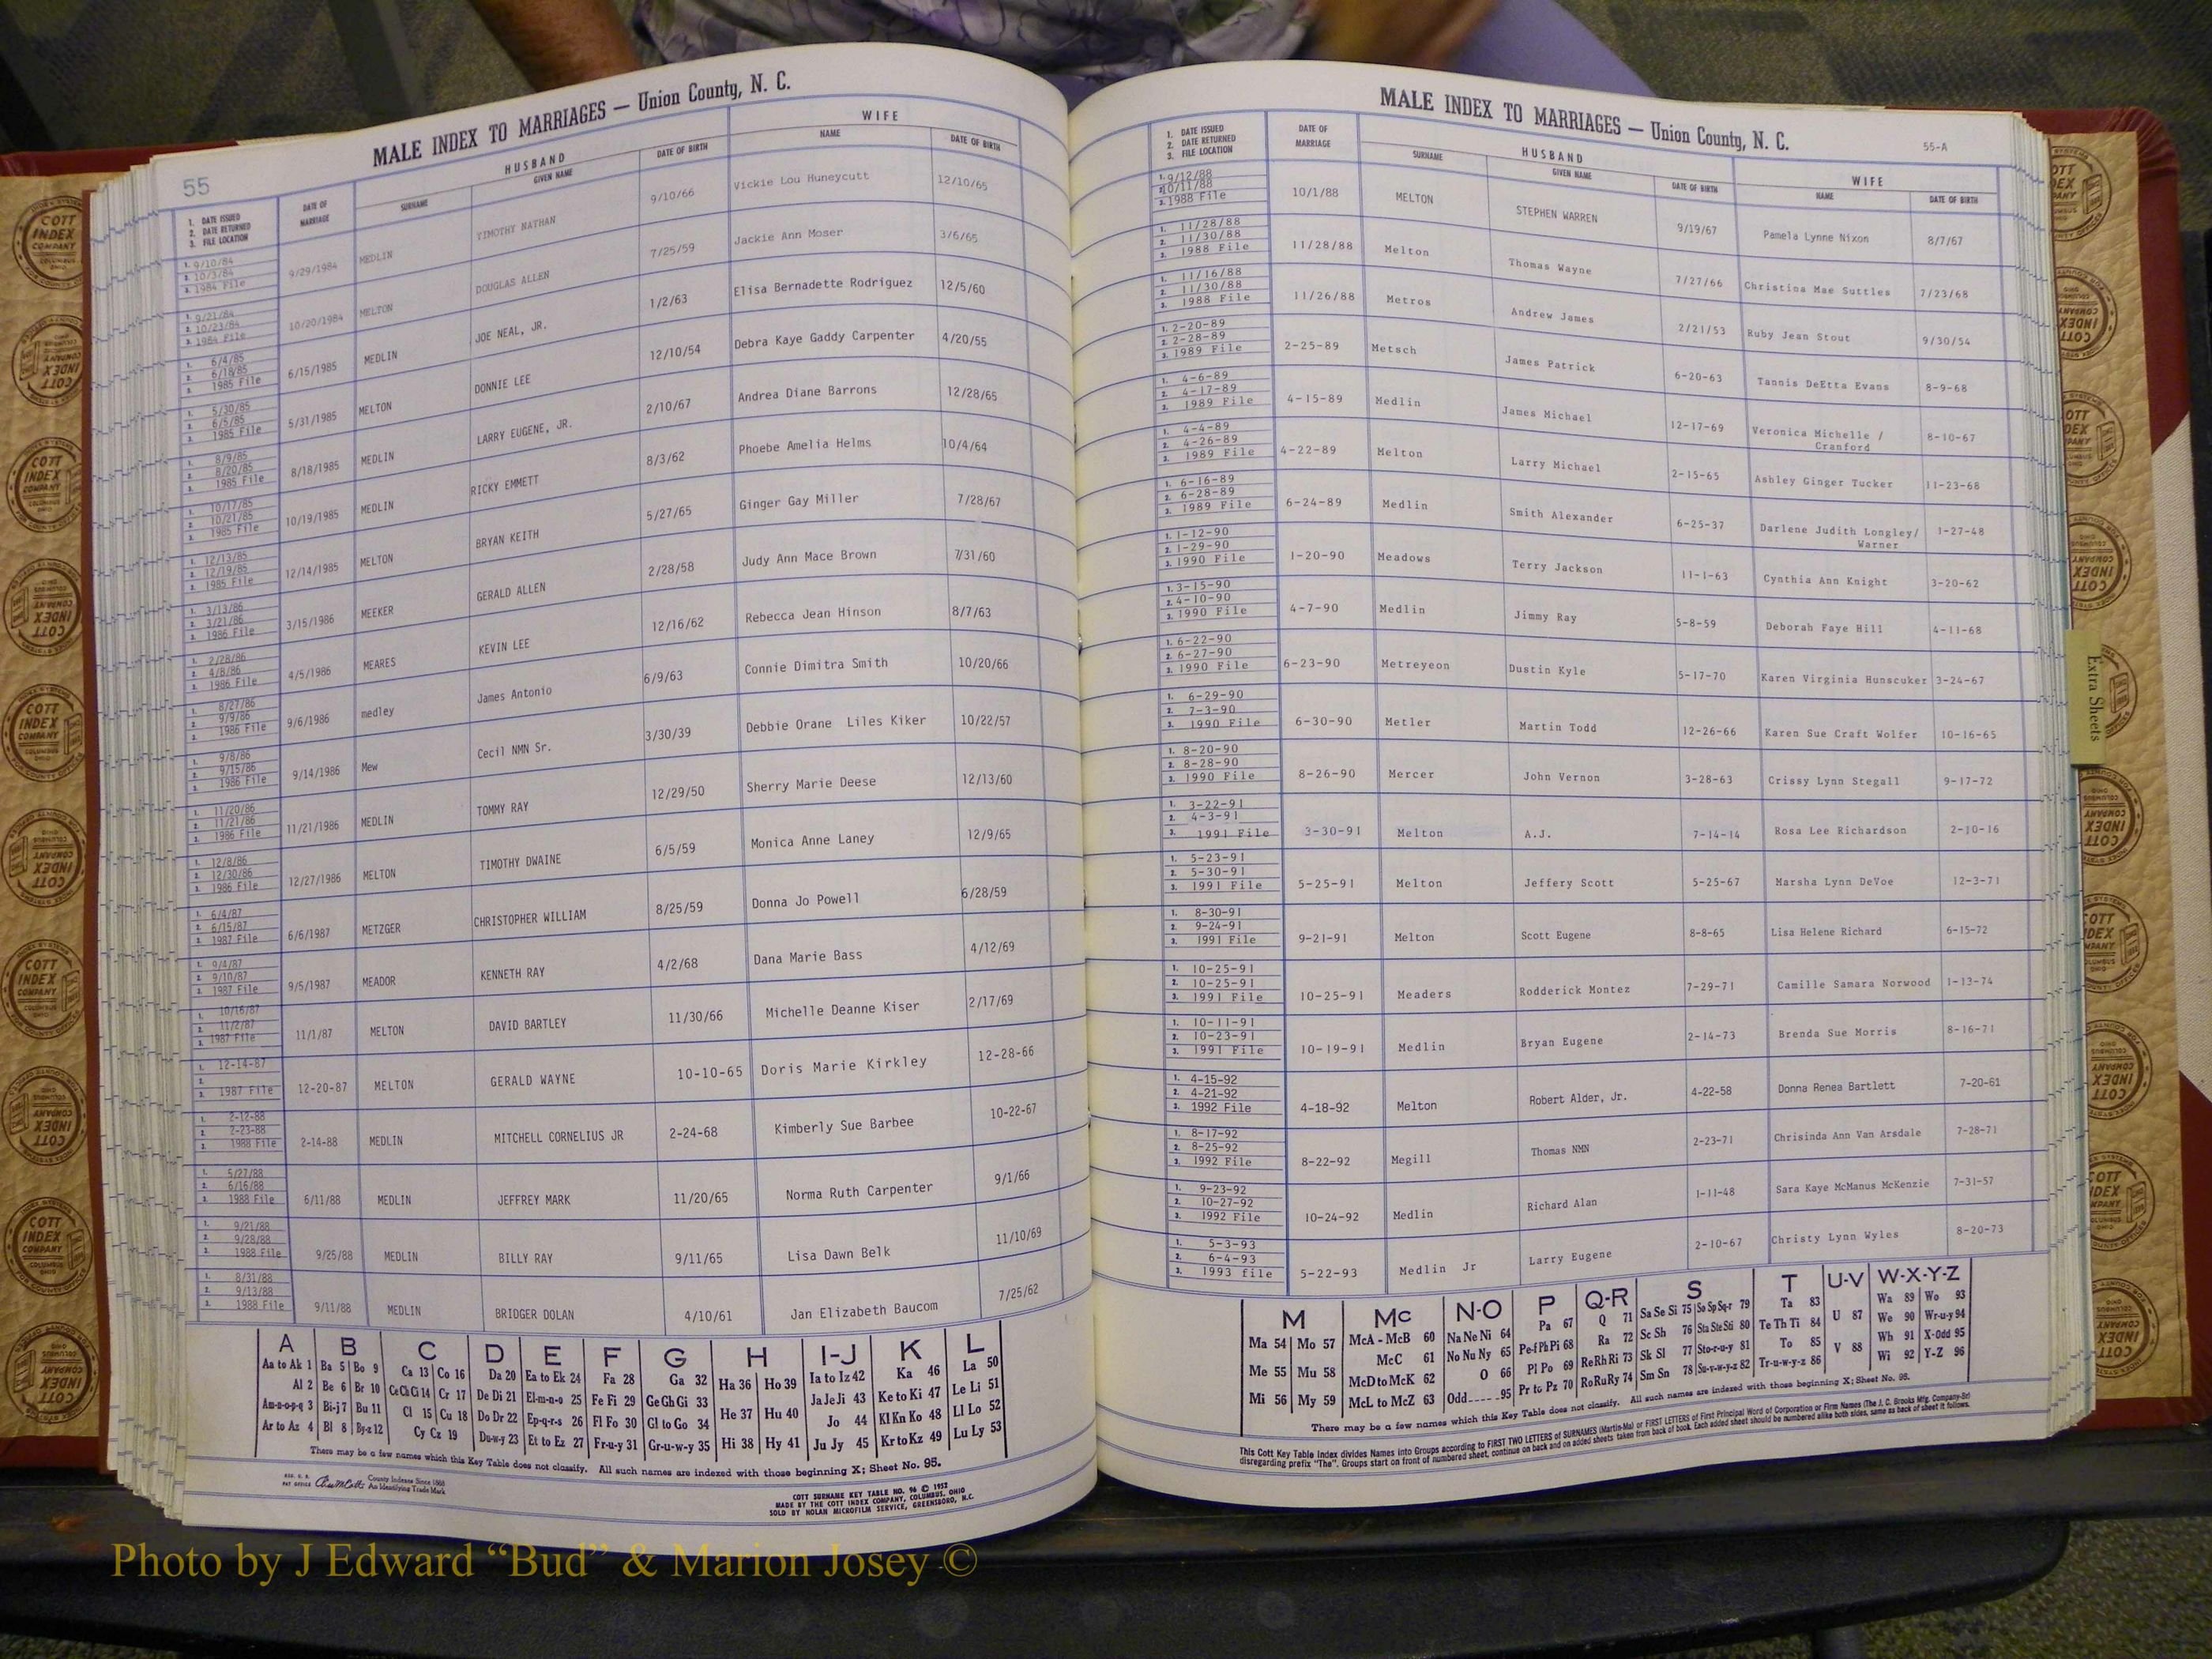 MALE INDEX TO MARRIAGES — Union County, N. C.
55
1. DATE ISSUED 2. DATE RETURNED 3. FILE LOCATION DATE OF MARRIAGE HUSBAND SURNAME GIVEN NAME DATE OF BIRTH WIFE NAME DATE OF BIRTH
1. 9/10/84 2. 10/3/84 3. 1984 File 9/29/1984 MEDLIN TIMOTHY NATHAN 9/10/66 Vickie Lou Huneycutt 12/10/65
1. 9/21/84 2. 10/23/84 3. 1984 File 10/20/1984 MELTON DOUGLAS ALLEN 7/25/59 Jackie Ann Moser 3/6/65
1. 6/4/85 2. 6/18/85 3. 1985 File 6/15/1985 MEDLIN JOE NEAL, JR. 1/2/63 Elisa Bernadette Rodriguez 12/5/60
1. 5/30/85 2. 6/5/85 3. 1985 File 5/31/1985 MELTON DONNIE LEE 12/10/54 Debra Kaye Gaddy Carpenter 4/20/55
1. 8/9/85 2. 8/20/85 3. 1985 File 8/18/1985 MEDLIN LARRY EUGENE, JR. 2/10/67 Andrea Diane Barrons 12/28/65
1. 10/17/85 2. 10/21/85 3. 1985 File 10/19/1985 MEDLIN RICKY EMMETT 8/3/62 Phoebe Amelia Helms 10/4/64
1. 12/13/85 2. 12/19/85 3. 1985 File 12/14/1985 MELTON BRYAN KEITH 5/27/65 Ginger Gay Miller 7/28/67
1. 3/13/86 2. 3/21/86 3. 1986 File 3/15/1986 MEEKER GERALD ALLEN 2/28/58 Judy Ann Mace Brown 7/31/60
1. 2/28/86 2. 4/8/86 3. 1986 File 4/5/1986 MEARES KEVIN LEE 12/16/62 Rebecca Jean Hinson 8/7/63
1. 8/27/86 2. 9/9/86 3. 1986 File 9/6/1986 medley James Antonio 6/9/63 Connie Dimitra Smith 10/20/66
1. 9/8/86 2. 9/15/86 3. 1986 File 9/14/1986 Mew Cecil NMN Sr. 3/30/39 Debbie Orane Liles Kiker 10/22/57
1. 11/20/86 2. 11/21/86 3. 1986 File 11/21/1986 MEDLIN TOMMY RAY 12/29/50 Sherry Marie Deese 12/13/60
1. 12/8/86 2. 12/30/86 3. 1986 File 12/27/1986 MELTON TIMOTHY DWAINE 6/5/59 Monica Anne Laney 12/9/65
1. 6/4/87 2. 6/15/87 3. 1987 File 6/6/1987 METZGER CHRISTOPHER WILLIAM 8/25/59 Donna Jo Powell 6/28/59
1. 9/4/87 2. 9/10/87 3. 1987 File 9/5/1987 MEADOR KENNETH RAY 4/2/68 Dana Marie Bass 4/12/69
1. 10/16/87 2. 11/2/87 3. 1987 File 11/1/87 MELTON DAVID BARTLEY 11/30/66 Michelle Deanne Kiser 2/17/69
1. 12-14-87 2. 3. 1987 File 12-20-87 MELTON GERALD WAYNE 10-10-65 Doris Marie Kirkley 12-28-66
1. 2-12-88 2. 2-23-88 3. 1988 File 2-14-88 MEDLIN MITCHELL CORNELIUS JR 2-24-68 Kimberly Sue Barbee 10-22-67
1. 5/27/88 2. 6/16/88 3. 1988 File 6/11/88 MEDLIN JEFFREY MARK 11/20/65 Norma Ruth Carpenter 9/1/66
1. 9/21/88 2. 9/28/88 3. 1988 File 9/25/88 MEDLIN BILLY RAY 9/11/65 Lisa Dawn Belk 11/10/69
1. 8/31/88 2. 9/13/88 3. 1988 File 9/11/88 MEDLIN BRIDGER DOLAN 4/10/61 Jan Elizabeth Baucom 7/25/62
A B C D E F G H I-J K L
Aa to Ak 1 Ba 5 Bo 9 Ca 13 Co 16 Da 20 Ea to Ek 24 Fa 28 Ga 32 Ha 36 Ho 39 Ia to Iz 42 Ka 46 La 50
Al 2 Be 6 Br 10 Ce Ch Ci 14 Cr 17 De Di 21 El-m-n-o 25 Fe Fi 29 Ge Gh Gi 33 He 37 Hu 40 Ja Je Ji 43 Ke to Ki 47 Le Li 51
Am-n-o-p-q 3 Bi-j 7 Bu 11 Cl 15 Cu 18 Do Dr 22 Ep-q-r-s 26 Fl Fo 30 Gl to Go 34 Hi 38 Hy 41 Jo 44 Kl Kn Ko 48 Ll Lo 52
Ar to Az 4 Bl 8 By-z 12 Cy Cz 19 Du-w-y 23 Et to Ez 27 Fr-u-y 31 Gr-u-w-y 35 Ju Jy 45 Kr to Kz 49 Lu Ly 53
There may be a few names which this Key Table does not classify. All such names are indexed with those beginning X; Sheet No. 95.
County Indexes Since 1888
An Identifying Trade Mark
COTT SURNAME KEY TABLE NO. 96 © 1952
MADE BY THE COTT INDEX COMPANY, COLUMBUS, OHIO
SOLD BY NOLAN MICROFILM SERVICE, GREENSBORO, N.C.
MALE INDEX TO MARRIAGES — Union County, N. C.
55-A
1. DATE ISSUED 2. DATE RETURNED 3. FILE LOCATION DATE OF MARRIAGE HUSBAND SURNAME GIVEN NAME DATE OF BIRTH WIFE NAME DATE OF BIRTH
1. 9/12/88 2. 10/11/88 3. 1988 File 10/1/88 MELTON STEPHEN WARREN 9/19/67 Pamela Lynne Nixon 8/7/67
1. 11/28/88 2. 11/30/88 3. 1988 File 11/28/88 Melton Thomas Wayne 7/27/66 Christina Mae Suttles 7/23/68
1. 11/16/88 2. 11/30/88 3. 1988 File 11/26/88 Metros Andrew James 2/21/53 Ruby Jean Stout 9/30/54
1. 2-20-89 2. 2-28-89 3. 1989 File 2-25-89 Metsch James Patrick 6-20-63 Tannis DeEtta Evans 8-9-68
1. 4-6-89 2. 4-17-89 3. 1989 File 4-15-89 Medlin James Michael 12-17-69 Veronica Michelle / Cranford 8-10-67
1. 4-4-89 2. 4-26-89 3. 1989 File 4-22-89 Melton Larry Michael 2-15-65 Ashley Ginger Tucker 11-23-68
1. 6-16-89 2. 6-28-89 3. 1989 File 6-24-89 Medlin Smith Alexander 6-25-37 Darlene Judith Longley/ Warner 1-27-48
1. 1-12-90 2. 1-29-90 3. 1990 File 1-20-90 Meadows Terry Jackson 11-1-63 Cynthia Ann Knight 3-20-62
1. 3-15-90 2. 4-10-90 3. 1990 File 4-7-90 Medlin Jimmy Ray 5-8-59 Deborah Faye Hill 4-11-68
1. 6-22-90 2. 6-27-90 3. 1990 File 6-23-90 Metreyeon Dustin Kyle 5-17-70 Karen Virginia Hunscuker 3-24-67
1. 6-29-90 2. 7-3-90 3. 1990 File 6-30-90 Metler Martin Todd 12-26-66 Karen Sue Craft Wolfer 10-16-65
1. 8-20-90 2. 8-28-90 3. 1990 File 8-26-90 Mercer John Vernon 3-28-63 Crissy Lynn Stegall 9-17-72
1. 3-22-91 2. 4-3-91 3. 1991 File 3-30-91 Melton A.J. 7-14-14 Rosa Lee Richardson 2-10-16
1. 5-23-91 2. 5-30-91 3. 1991 File 5-25-91 Melton Jeffery Scott 5-25-67 Marsha Lynn DeVoe 12-3-71
1. 8-30-91 2. 9-24-91 3. 1991 File 9-21-91 Melton Scott Eugene 8-8-65 Lisa Helene Richard 6-15-72
1. 10-25-91 2. 10-25-91 3. 1991 File 10-25-91 Meaders Rodderick Montez 7-29-71 Camille Samara Norwood 1-13-74
1. 10-11-91 2. 10-23-91 3. 1991 File 10-19-91 Medlin Bryan Eugene 2-14-73 Brenda Sue Morris 8-16-71
1. 4-15-92 2. 4-21-92 3. 1992 File 4-18-92 Melton Robert Alder, Jr. 4-22-58 Donna Renea Bartlett 7-20-61
1. 8-17-92 2. 8-25-92 3. 1992 File 8-22-92 Megill Thomas NMN 2-23-71 Chrisinda Ann Van Arsdale 7-28-71
1. 9-23-92 2. 10-27-92 3. 1992 File 10-24-92 Medlin Richard Alan 1-11-48 Sara Kaye McManus McKenzie 7-31-57
1. 5-3-93 2. 6-4-93 3. 1993 file 5-22-93 Medlin Jr Larry Eugene 2-10-67 Christy Lynn Wyles 8-20-73
M Mc N-O P Q-R S T U-V W-X-Y-Z
Ma 54 Mo 57 McA - McB 60 Na Ne Ni 64 Pa 67 Q 71 Sa Se Si 75 So Sp Sq-r 79 Ta 83 U 87 Wa 89 Wo 93
Me 55 Mu 58 McC 61 No Nu Ny 65 Pe-f Ph Pi 68 Ra 72 Sc Sh 76 Sta Ste Sti 80 Te Th Ti 84 V 88 We 90 Wr-u-y 94
Mi 56 My 59 McD to McK 62 O 66 Pl Po 69 Re Rh Ri 73 Sk Sl 77 Sto-r-u-y 81 To 85 Wh 91 X-Odd 95
McL to McZ 63 Odd 95 Pr to Pz 70 Ro Ru Ry 74 Sm Sn 78 Su-v-w-y-z 82 Tr-u-w-y-z 86 Wi 92 Y-Z 96
There may be a few names which this Key Table does not classify. All such names are indexed with those beginning X; Sheet No. 95.
This Cott Key Table Index divides Names into Groups according to FIRST TWO LETTERS of SURNAMES (Martin-Ma) or FIRST LETTERS of First Principal Word of Corporation or Firm Names (The J. C. Brooks Mfg. Company-Br)
disregarding prefix "The". Groups start on front of numbered sheet, continue on back and on added sheets taken from back of book. Each added sheet should be numbered alike both sides, same as back of sheet it follows.
Extra Sheets
COTT INDEX COMPANY COLUMBUS, OHIO
Photo by J Edward “Bud” & Marion Josey ©